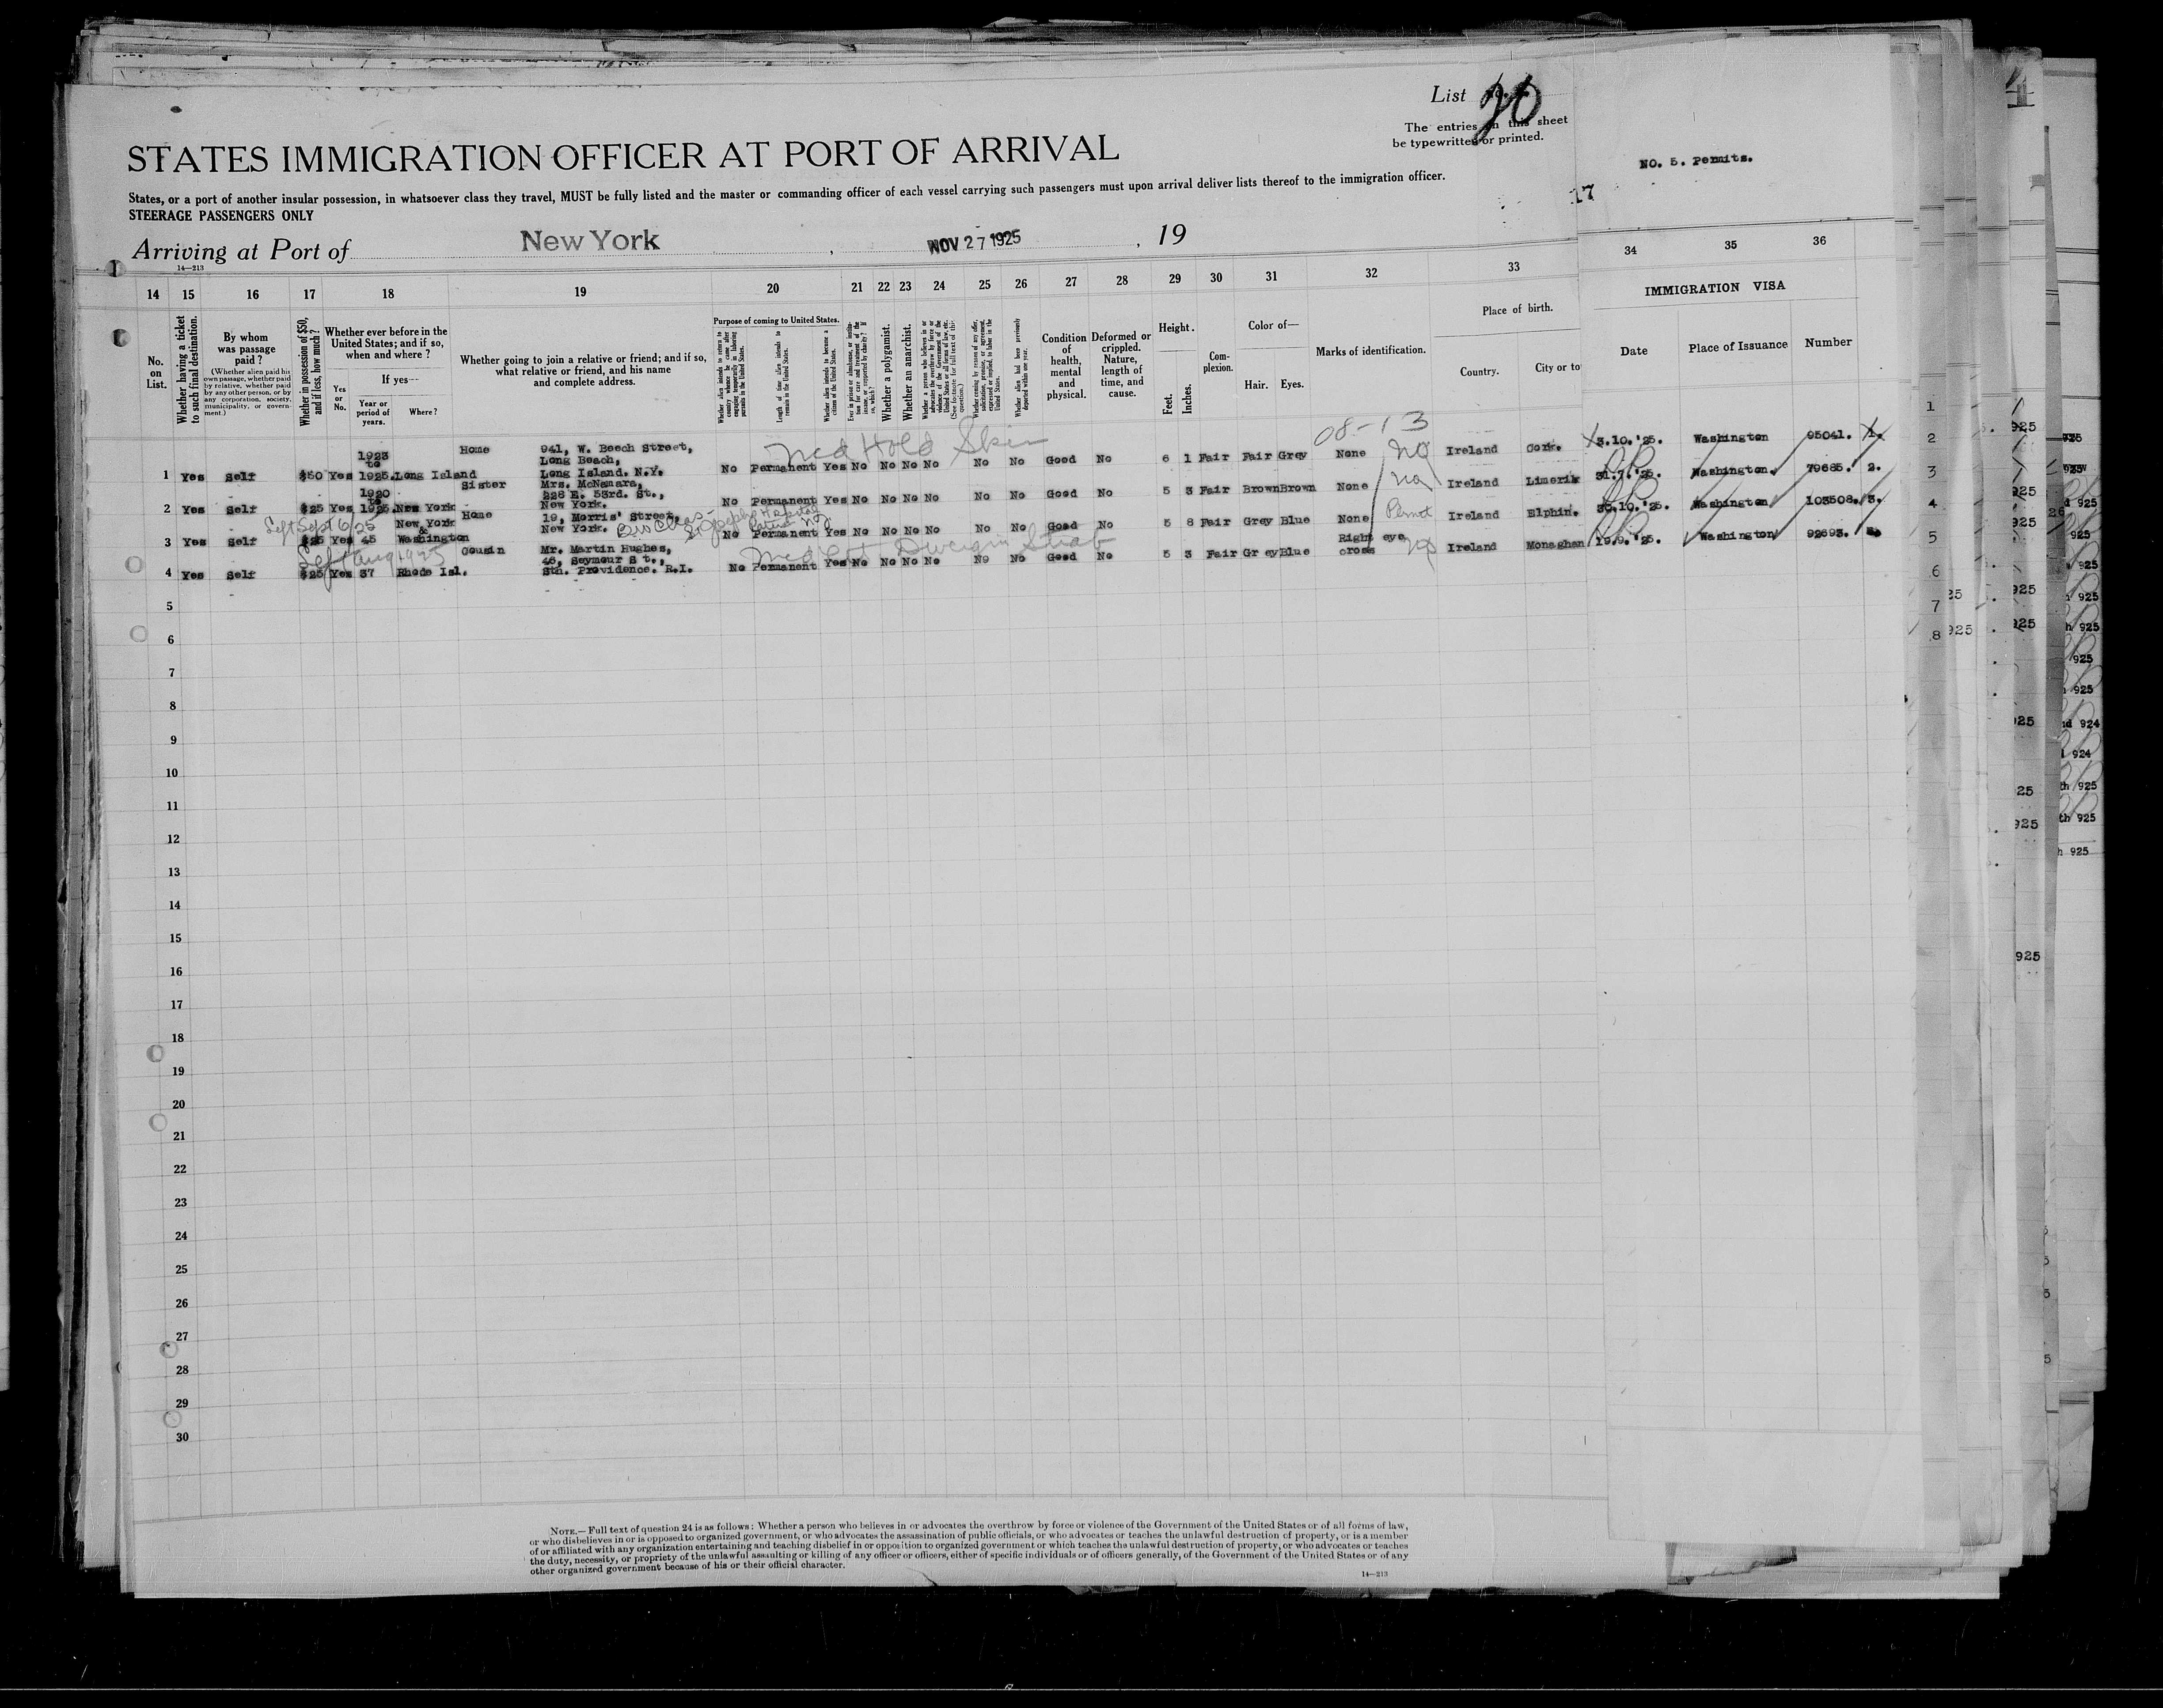 List 20
The entries on this sheet
be typewritten or printed.
NO. 5. Permits.
STATES IMMIGRATION OFFICER AT PORT OF ARRIVAL
States, or a port of another insular possession, in whatsoever class they travel, MUST be fully listed and the master or commanding officer of each vessel carrying such passengers must upon arrival deliver lists thereof to the immigration officer.
17
STEERAGE PASSENGERS ONLY
Arriving at Port of New York, NOV 27 1925, 19
14—213
14 15 16 17 18 19 20 21 22 23 24 25 26 27 28 29 30 31 32 33 34 35 36
IMMIGRATION VISA
No. on List.
Whether having a ticket to such final destination.
By whom was passage paid?
(Whether alien paid his own passage, whether paid by relative, whether paid by any other person, or by any corporation, society, municipality, or government.)
Whether in possession of $50, and if less, how much?
Whether ever before in the United States; and if so, when and where?
If yes—
Yes or No.
Year or period of years.
Where?
Whether going to join a relative or friend; and if so, what relative or friend, and his name and complete address.
Purpose of coming to United States.
Whether alien intends to return to country whence he came after engaging temporarily in laboring pursuits in the United States.
Length of time alien intends to remain in the United States.
Whether alien intends to become a citizen of the United States.
Ever in prison or almshouse, or institution for care and treatment of the insane, or supported by charity? If so, which?
Whether a polygamist.
Whether an anarchist.
Whether a person who believes in or advocates the overthrow by force or violence of the Government of the United States or all forms of law, etc. (See footnote for full text of this question.)
Whether coming by reason of any offer, solicitation, promise, or agreement, expressed or implied, to labor in the United States.
Whether alien had been previously deported within one year.
Condition of health, mental and physical.
Deformed or crippled. Nature, length of time, and cause.
Height.
Feet. Inches.
Complexion.
Color of—
Hair. Eyes.
Marks of identification.
Place of birth.
Country. City or to
Date Place of Issuance Number
08-13
Med Hold Skin
1 Yes Self $50 Yes 1923 to 1925. Long Island Home 941, W. Beech Street, Long Beach, Long Island. N.Y. No Permanent Yes No No No No No No Good No 6 1 Fair Fair Grey None No Ireland Cork. 3.10.'25. Washington 95041. 1.
2 Yes Self $25 Yes 1920 to 1925. New York Sister Mrs. McNamara, 226 E. 53rd. St., New York. No Permanent Yes No No No No No No Good No 5 3 Fair Brown Brown None No Ireland Limerik 31.7.'25. Washington. 79685. 2.
Left Sept 6/25
3 Yes Self $25 Yes 45 New York & Washington Home 19, Morris' Street, New York. No Permanent Yes No No No No No No Good No 5 8 Fair Grey Blue None Permit Ireland Elphin. 30.10.'25. Washington 103508. 3.
Left Aug 1925
4 Yes Self $25 Yes 37 Rhode Isl. Cousin Mr. Martin Hughes, 46, Seymour St., Sth. Providence. R.I. No Permanent Yes No No No No No No Good No 5 3 Fair Grey Blue Right eye cross No Ireland Monaghan 19.9.'25. Washington 92693.
5
6
7
8
9
10
11
12
13
14
15
16
17
18
19
20
21
22
23
24
25
26
27
28
29
30
NOTE.—Full text of question 24 is as follows: Whether a person who believes in or advocates the overthrow by force or violence of the Government of the United States or of all forms of law,
or who disbelieves in or is opposed to organized government, or who advocates the assassination of public officials, or who advocates or teaches the unlawful destruction of property, or is a member
of or affiliated with any organization entertaining and teaching disbelief in or opposition to organized government or which teaches the unlawful destruction of property, or who advocates or teaches
the duty, necessity, or propriety of the unlawful assaulting or killing of any officer or officers, either of specific individuals or of officers generally, of the Government of the United States or of any
other organized government because of his or their official character.
14—213